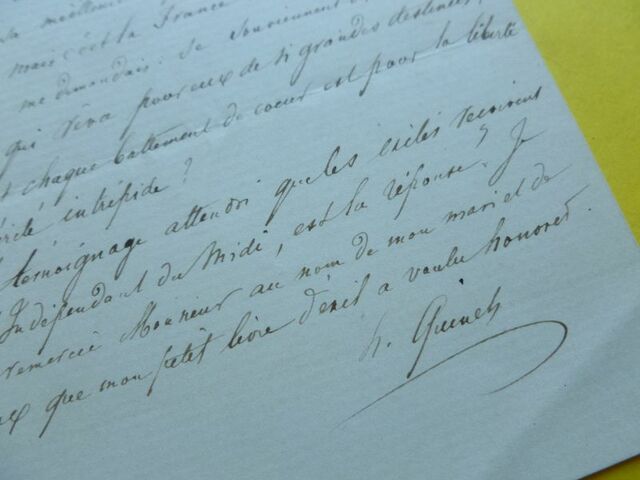 sa meilleure
mais c'est la France
me demandais: se souviennent
qui rêva pour eux de si grandes destinées,
t chaque battement de coeur est pour la liberté
intrépide?
témoignage attendri que les exilés reçoivent
Indépendant du Midi, est la réponse. Je
remercie Monsieur au nom de mon mari et de
ux que mon petit livre d'exil a voulu honorer.
h. Quinet